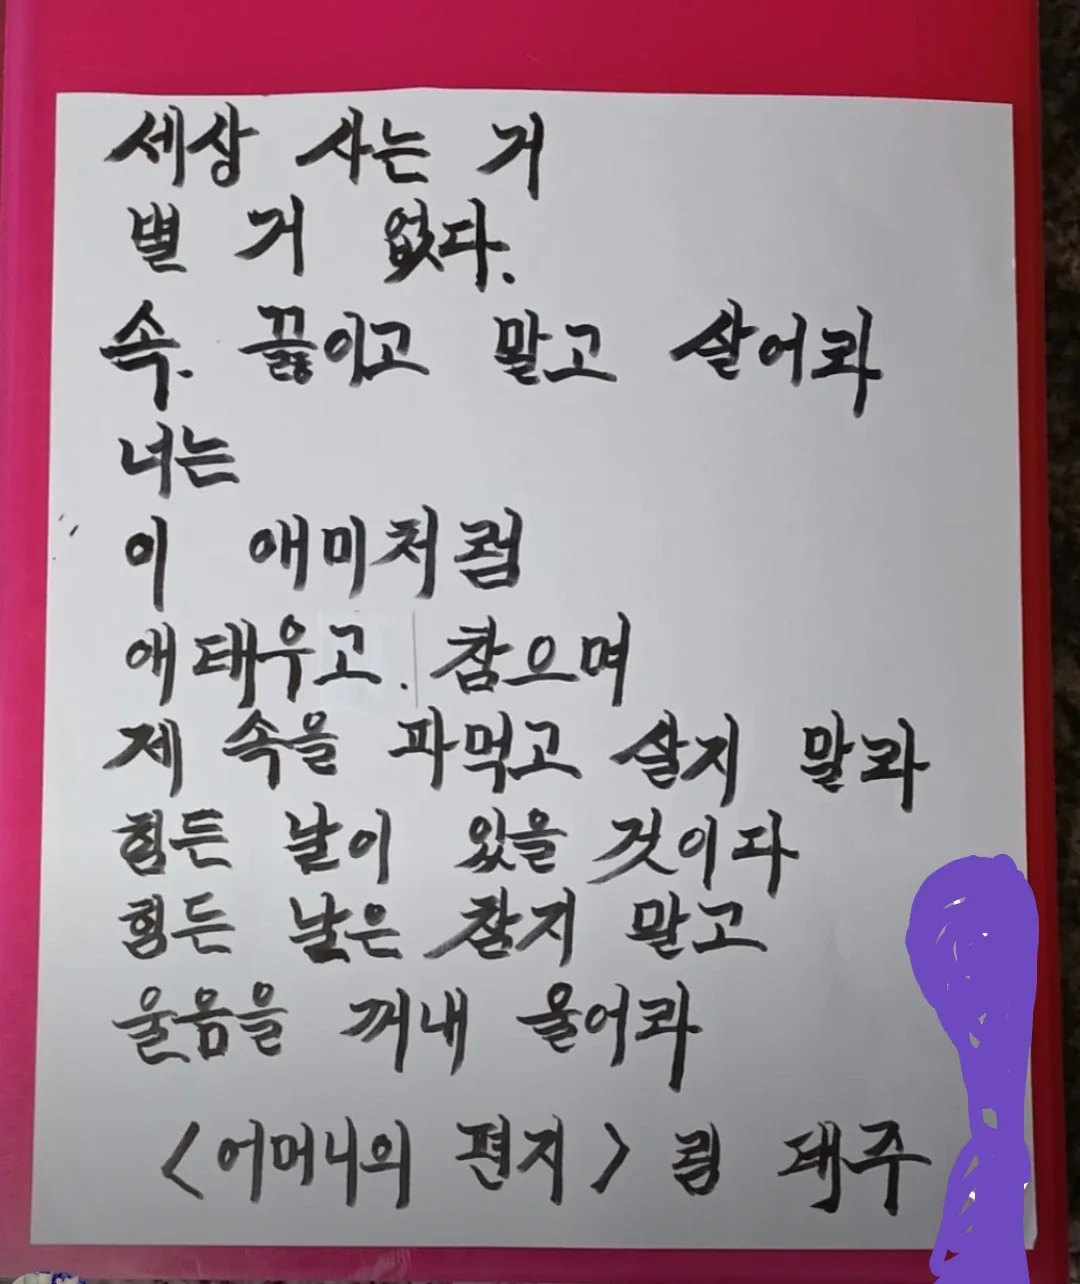 세상 사는 거
별 거 없다.
속. 끓이고 말고 살어라
너는
이 애미처럼
애태우고. 참으며
제 속을 파먹고 살지 말라
힘든 날이 있을 것이다
힘든 날은 참지 말고
울음을 꺼내 울어라
<어머니의 편지> 림 태주